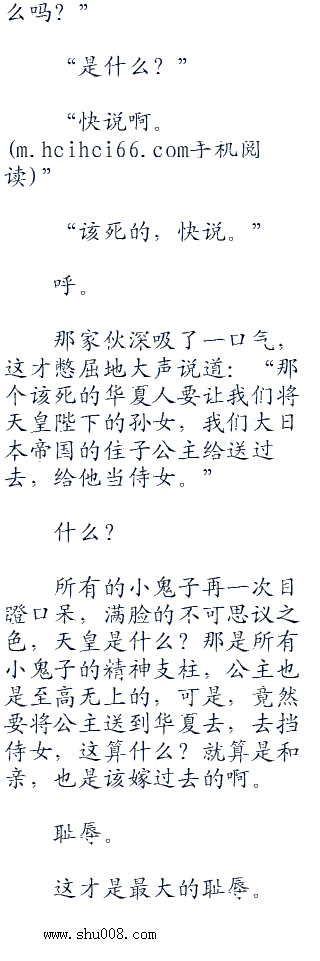 么吗？”
“是什么？”
“快说啊。
(m.hcihci66.com手机阅
读)”
“该死的，快说。”
呼。
那家伙深吸了一口气，
这才憋屈地大声说道：“那
个该死的华夏人要让我们将
天皇陛下的孙女，我们大日
本帝国的佳子公主给送过
去，给他当侍女。”
什么？
所有的小鬼子再一次目
瞪口呆，满脸的不可思议之
色，天皇是什么？那是所有
小鬼子的精神支柱，公主也
是至高无上的，可是，竟然
要将公主送到华夏去，去挡
侍女，这算什么？就算是和
亲，也是该嫁过去的啊。
耻辱。
这才是最大的耻辱。
www.shu008.com